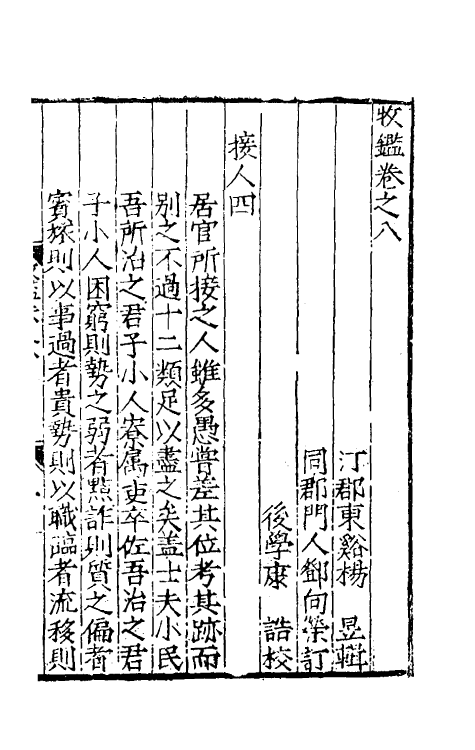 牧鑑卷之八
汀郡東谿楊　昱輯
同郡門人鄧向榮訂
後學康　誥校
接人四
居官所接之人雖多愚嘗差其位考其跡而
別之不過十二類足以盡之矣盖士夫小民
吾所治之君子小人寮属吏卒佐吾治之君
子小人困窮則勢之弱者點詐則質之偏者
賓旅則以事過者貴勢則以職臨者流移則